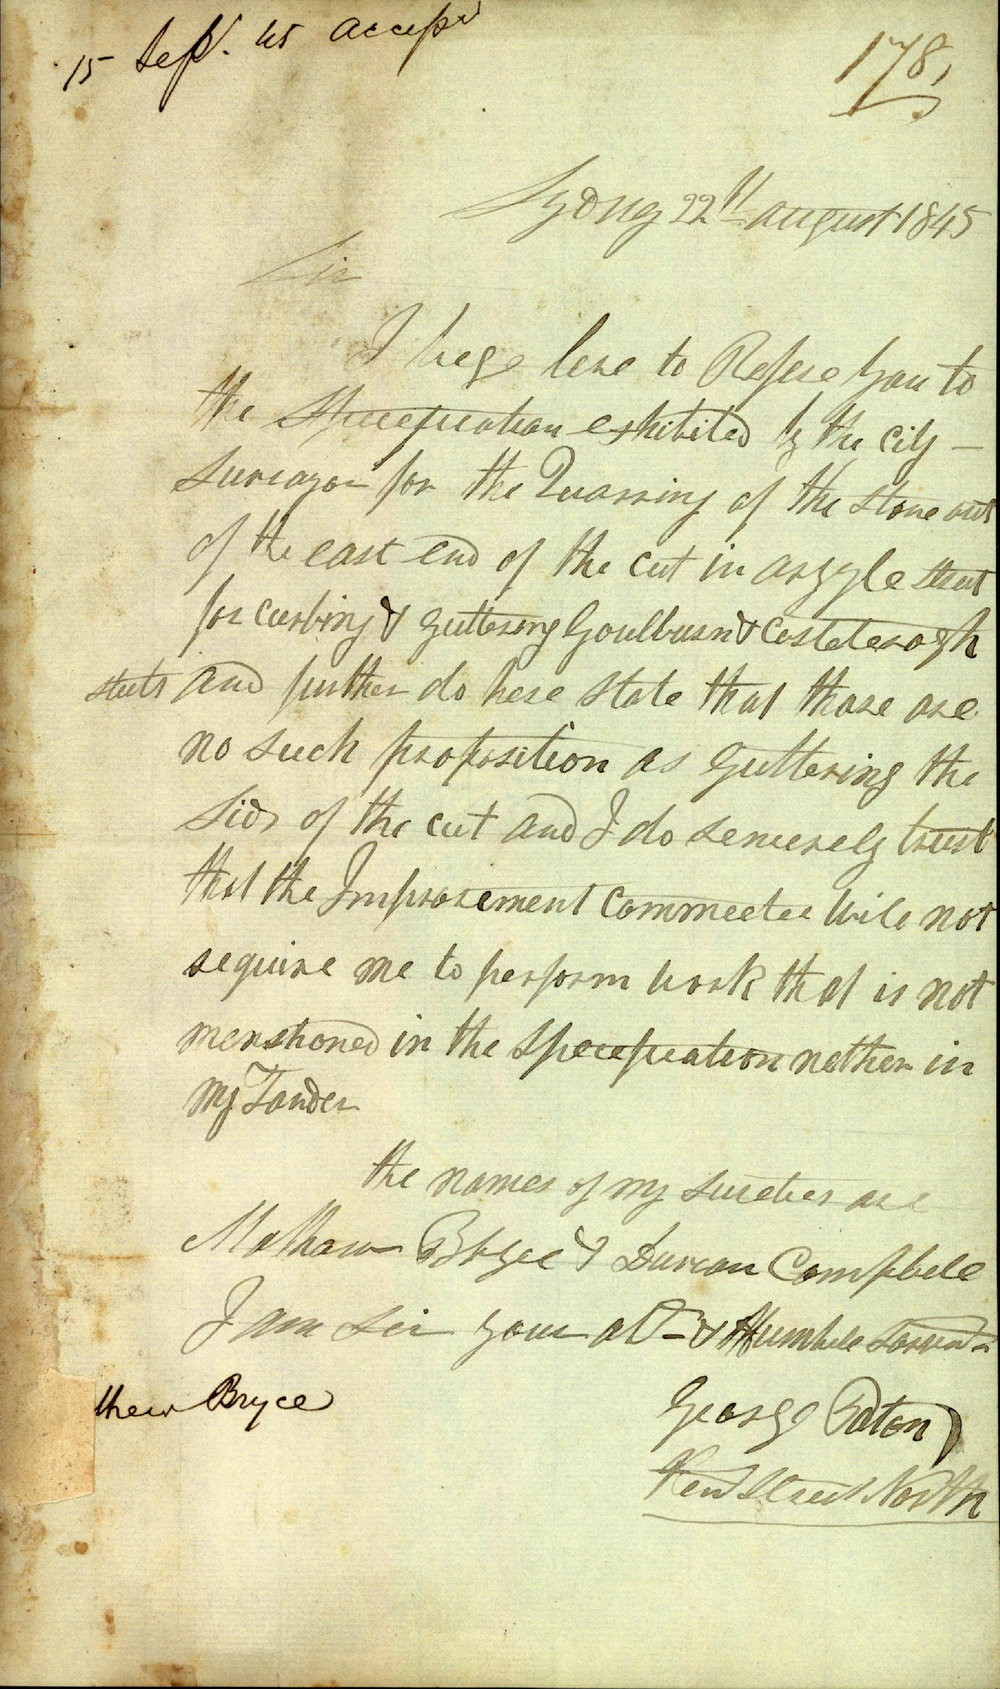 15 Sepr. 45 accepd
178,
Sydny 22th august 1845
Sir
I bege leve to Refere you to
the Specefecation exhibited by the city
surveyor for the Quarring of the stone out
of the east end of the cut in argyle street
for curbing & guttering Goulburn & Casteleragh
steets and further do here state that thare are
no such proposition as guttering the
Side of the cut and I do sencerely trust
that the Improvement Commeetee will not
require me to perform work that is not
menshoned in the specefecation nether in
my Tander
the names of my sureties are
Mathew Bryce & Duncan Campbell
I am Sir your obt & Humble Servn
George Paton
thew Bryce
Kent Street North